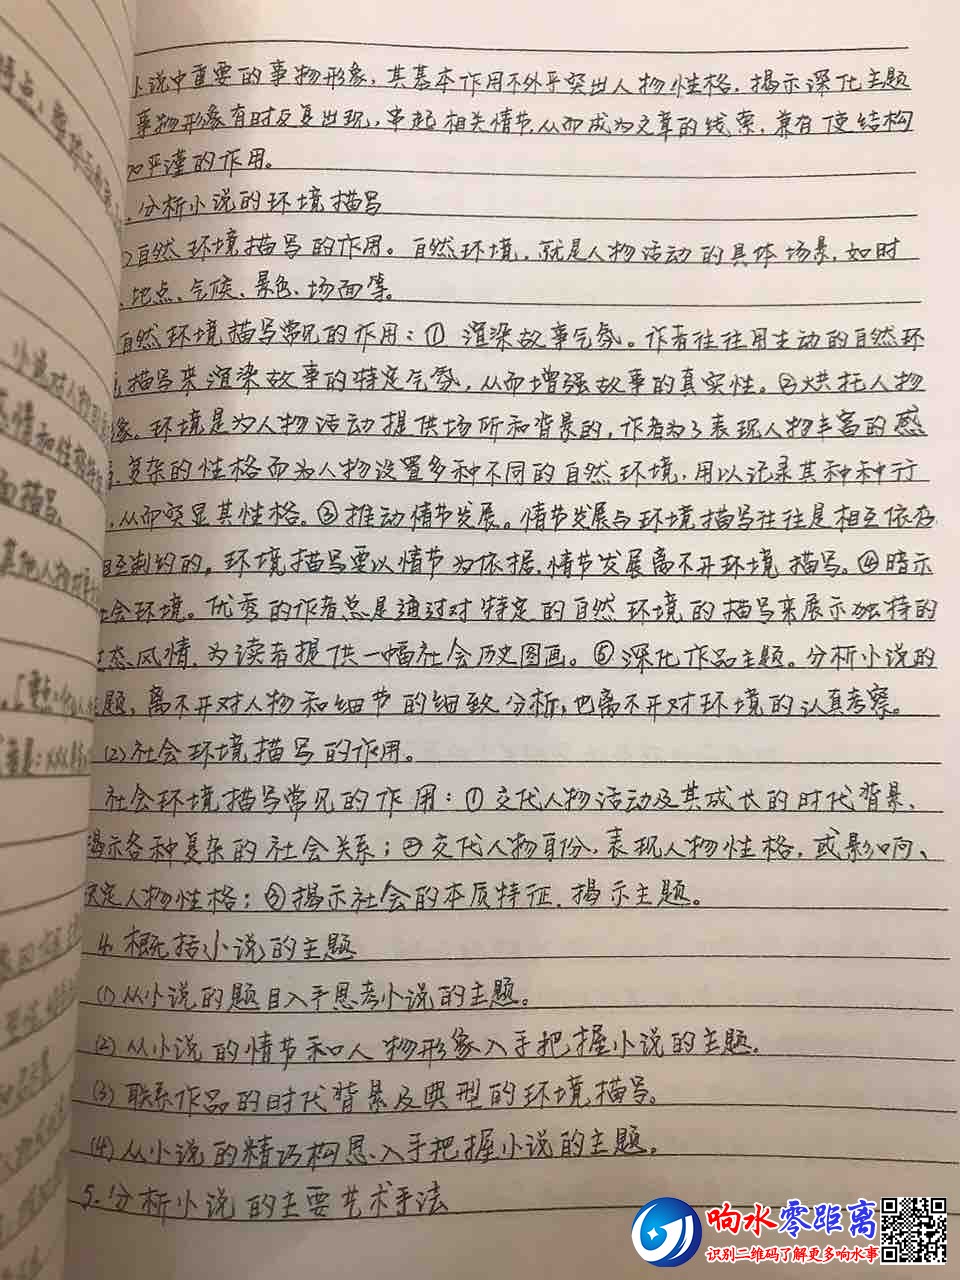 小说中重要的事物形象，其基本作用不外乎突出人物性格，揭示深化主题
事物形象有时反复出现，串起相关情节，从而成为文章的线索，兼有使结构
加严谨的作用。
分析小说的环境描写
自然环境描写的作用。自然环境，就是人物活动的具体场景，如时
、地点、气候、景色、场面等。
自然环境描写常见的作用：① 渲染故事气氛。作者往往用生动的自然环
境描写来渲染故事的特定气氛，从而增强故事的真实性。②烘托人物
象。环境是为人物活动提供场所和背景的，作者为了表现人物丰富的感
复杂的性格而为人物设置多种不同的自然环境，用以记录其种种行
，从而突显其性格。③推动情节发展。情节发展与环境描写往往是相互依存
相互制约的。环境描写要以情节为依据，情节发展离不开环境描写。④暗示
社会环境。优秀的作者总是通过对特定的自然环境的描写来展示独特的
态风情，为读者提供一幅社会历史图画。⑤深化作品主题。分析小说的
主题，离不开对人物和细节的细致分析，也离不开对环境的认真考察。
(2)社会环境描写的作用。
社会环境描写常见的作用：①交代人物活动及其成长的时代背景，
揭示各种复杂的社会关系；②交代人物身份，表现人物性格，或影响、
决定人物性格；③揭示社会的本质特征，揭示主题。
4. 概括小说的主题
(1)从小说的题目入手思考小说的主题。
(2)从小说的情节和人物形象入手把握小说的主题。
(3)联系作品的时代背景及典型的环境描写。
(4)从小说的精巧构思入手把握小说的主题。
5. 分析小说的主要艺术手法
响水零距离
识别二维码了解更多响水事